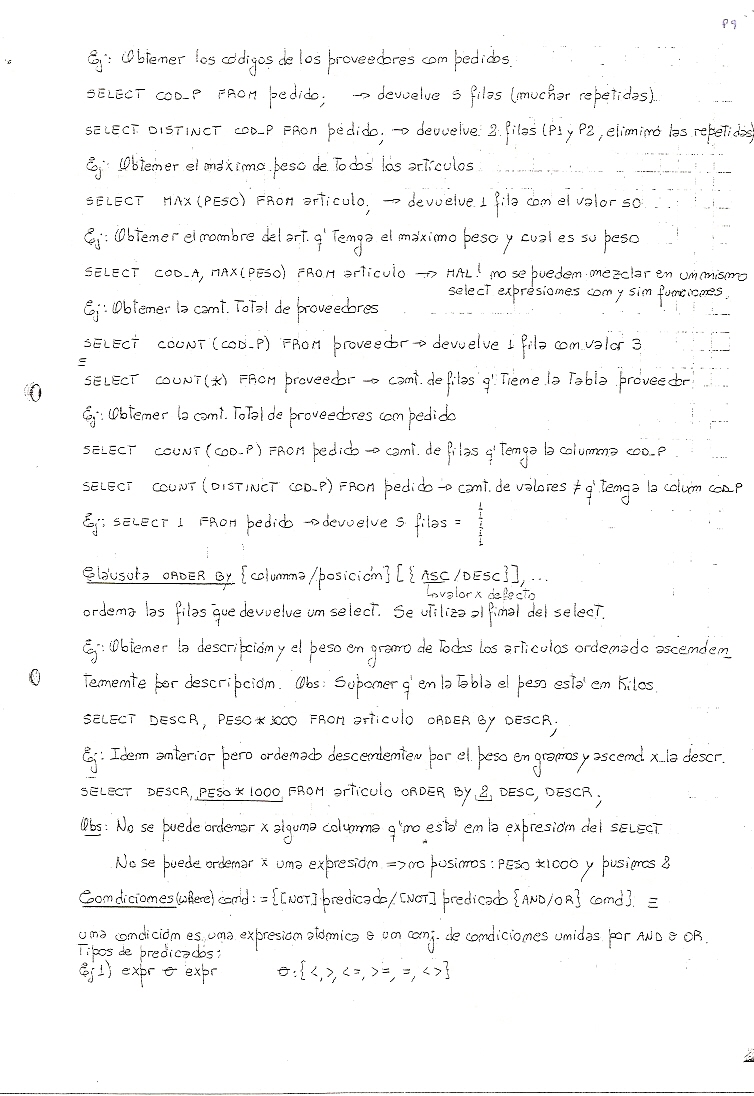 P9
Ej: Obtener los códigos de los proveedores con pedidos.
SELECT COD_P FROM pedido; → devuelve 5 filas (muchas repetidas).
SELECT DISTINCT COD_P FROM pedido; → devuelve 2 filas (P1 y P2, eliminó las repetidas)
Ej: Obtener el máximo peso de todos los artículos
SELECT MAX(PESO) FROM artículo; → devuelve 1 fila con el valor 50
Ej: Obtener el nombre del art. q' tenga el máximo peso y cual es su peso
SELECT COD_A, MAX(PESO) FROM artículo → MAL! no se pueden mezclar en un mismo
select expresiones con y sin funciones.
Ej: Obtener la cant. Total de proveedores
SELECT COUNT (COD_P) FROM proveedor → devuelve 1 fila con valor 3
≡
SELECT COUNT(*) FROM proveedor → cant. de filas q' tiene la tabla proveedor
Ej: Obtener la cant. Total de proveedores con pedido
SELECT COUNT (COD_P) FROM pedido → cant. de filas q' tenga la columna COD_P
SELECT COUNT (DISTINCT COD_P) FROM pedido → cant. de valores ≠ q' tenga la colum COD_P
Ej: SELECT 1 FROM pedido → devuelve 5 filas = 1 1 1 1 1
Cláusula ORDER BY {columna/posición} [{ASC/DESC}], ...
valor x defecto
ordena las filas que devuelve un select. Se utiliza al final del select.
Ej: Obtener la descripción y el peso en gramo de todos los artículos ordenado ascenden
temente por descripción. Obs: Suponer q' en la tabla el peso está en Kilos.
SELECT DESCR, PESO * 1000 FROM artículo ORDER BY DESCR;
Ej: Idem anterior pero ordenado descendenten por el peso en gramos y ascend x la descr.
SELECT DESCR, PESO * 1000 FROM artículo ORDER BY 2 DESC, DESCR;
Obs: No se puede ordenar x alguna columna q' no está en la expresión del SELECT
No se puede ordenar x una expresión => no pusimos: PESO *1000 y pusimos 2
Condiciones (where) cond: = {[NOT] predicado/[NOT] predicado {AND/OR} cond}. ≡
una condición es una expresión atómica o un conj. de condiciones unidas por AND o OR.
Tipos de predicados:
Ej 1) expr θ expr θ: {<, >, <=, >=, =, <>}